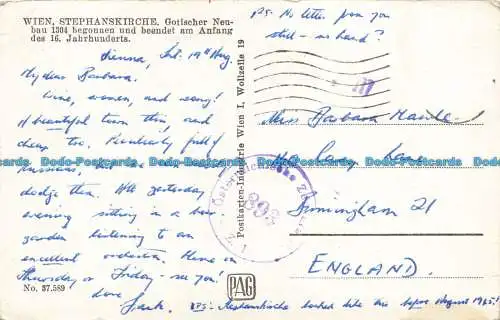 WIEN, STEPHANSKIRCHE. Gotischer Neu-
bau 1304 begonnen und beendet am Anfang
des 16. Jahrhunderts.
Vienna, Sat. 19th Aug.
My dear Barbara.
Wine, women, and song!
A beautiful town this, and
cheap too. Particularly full of
Russians, but one
dodge them. Yesterday
evening sitting in a beer
garden listening to an
excellent orchestra. Home on
Thursday or Friday - see you!
love
Jack.
No. 37.589
PAG
Postkarten-Industrie Wien I, Wollzeile 19
P.S. No letter from you
still - no hand?
Miss Barbara
Lane
Birmingham 21
ENGLAND.
Österreichische
393
P.P.S. Stephanskirche before August 1945!
Dodo-Postcards Dodo-Postcards Dodo-Postcards Dodo-Postcards